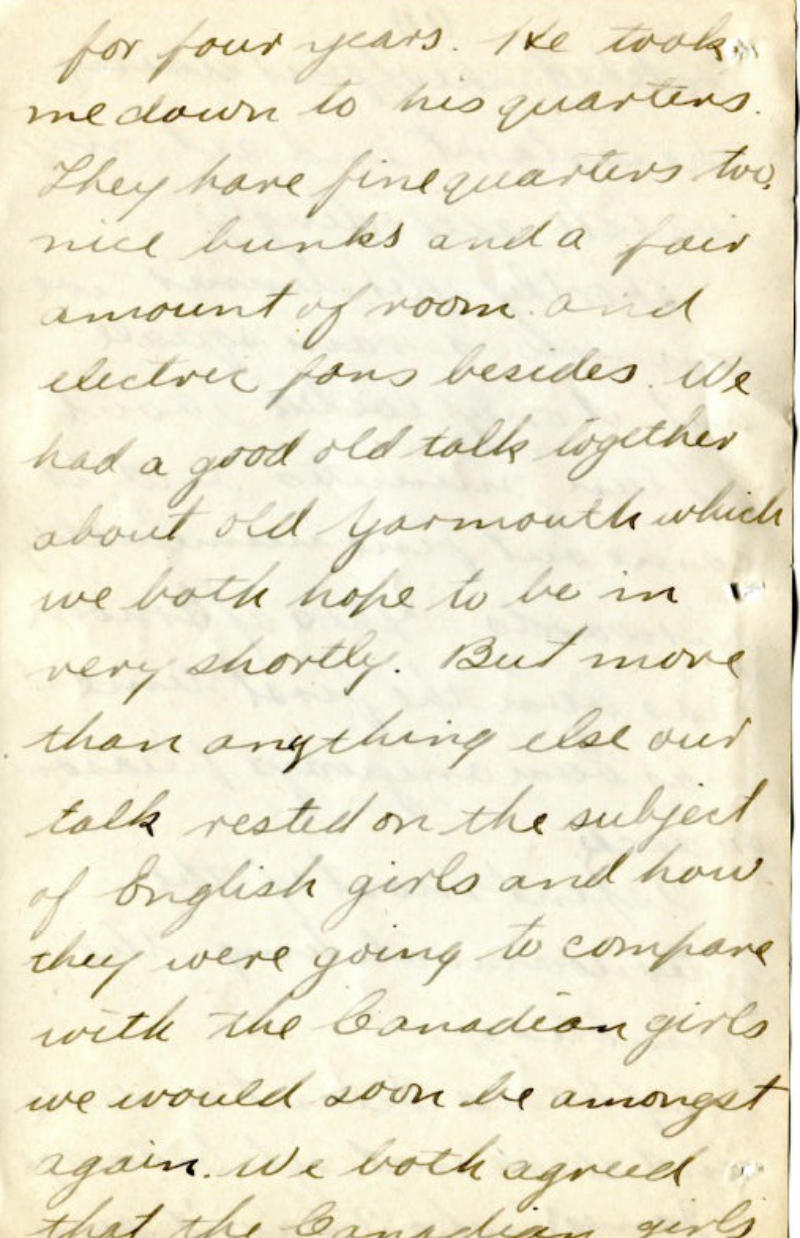 for four years. He took
me down to his quarters.
They have fine quarters too,
nice bunks and a fair
amount of room and
electric fans besides. We
had a good old talk together
about old Yarmouth which
we both hope to be in
very shortly. But more
than anything else our
talk rested on the subject
of English girls and how
they were going to compare
with the Canadian girls
we would soon be amongst
again. We both agreed
that the Canadian girls